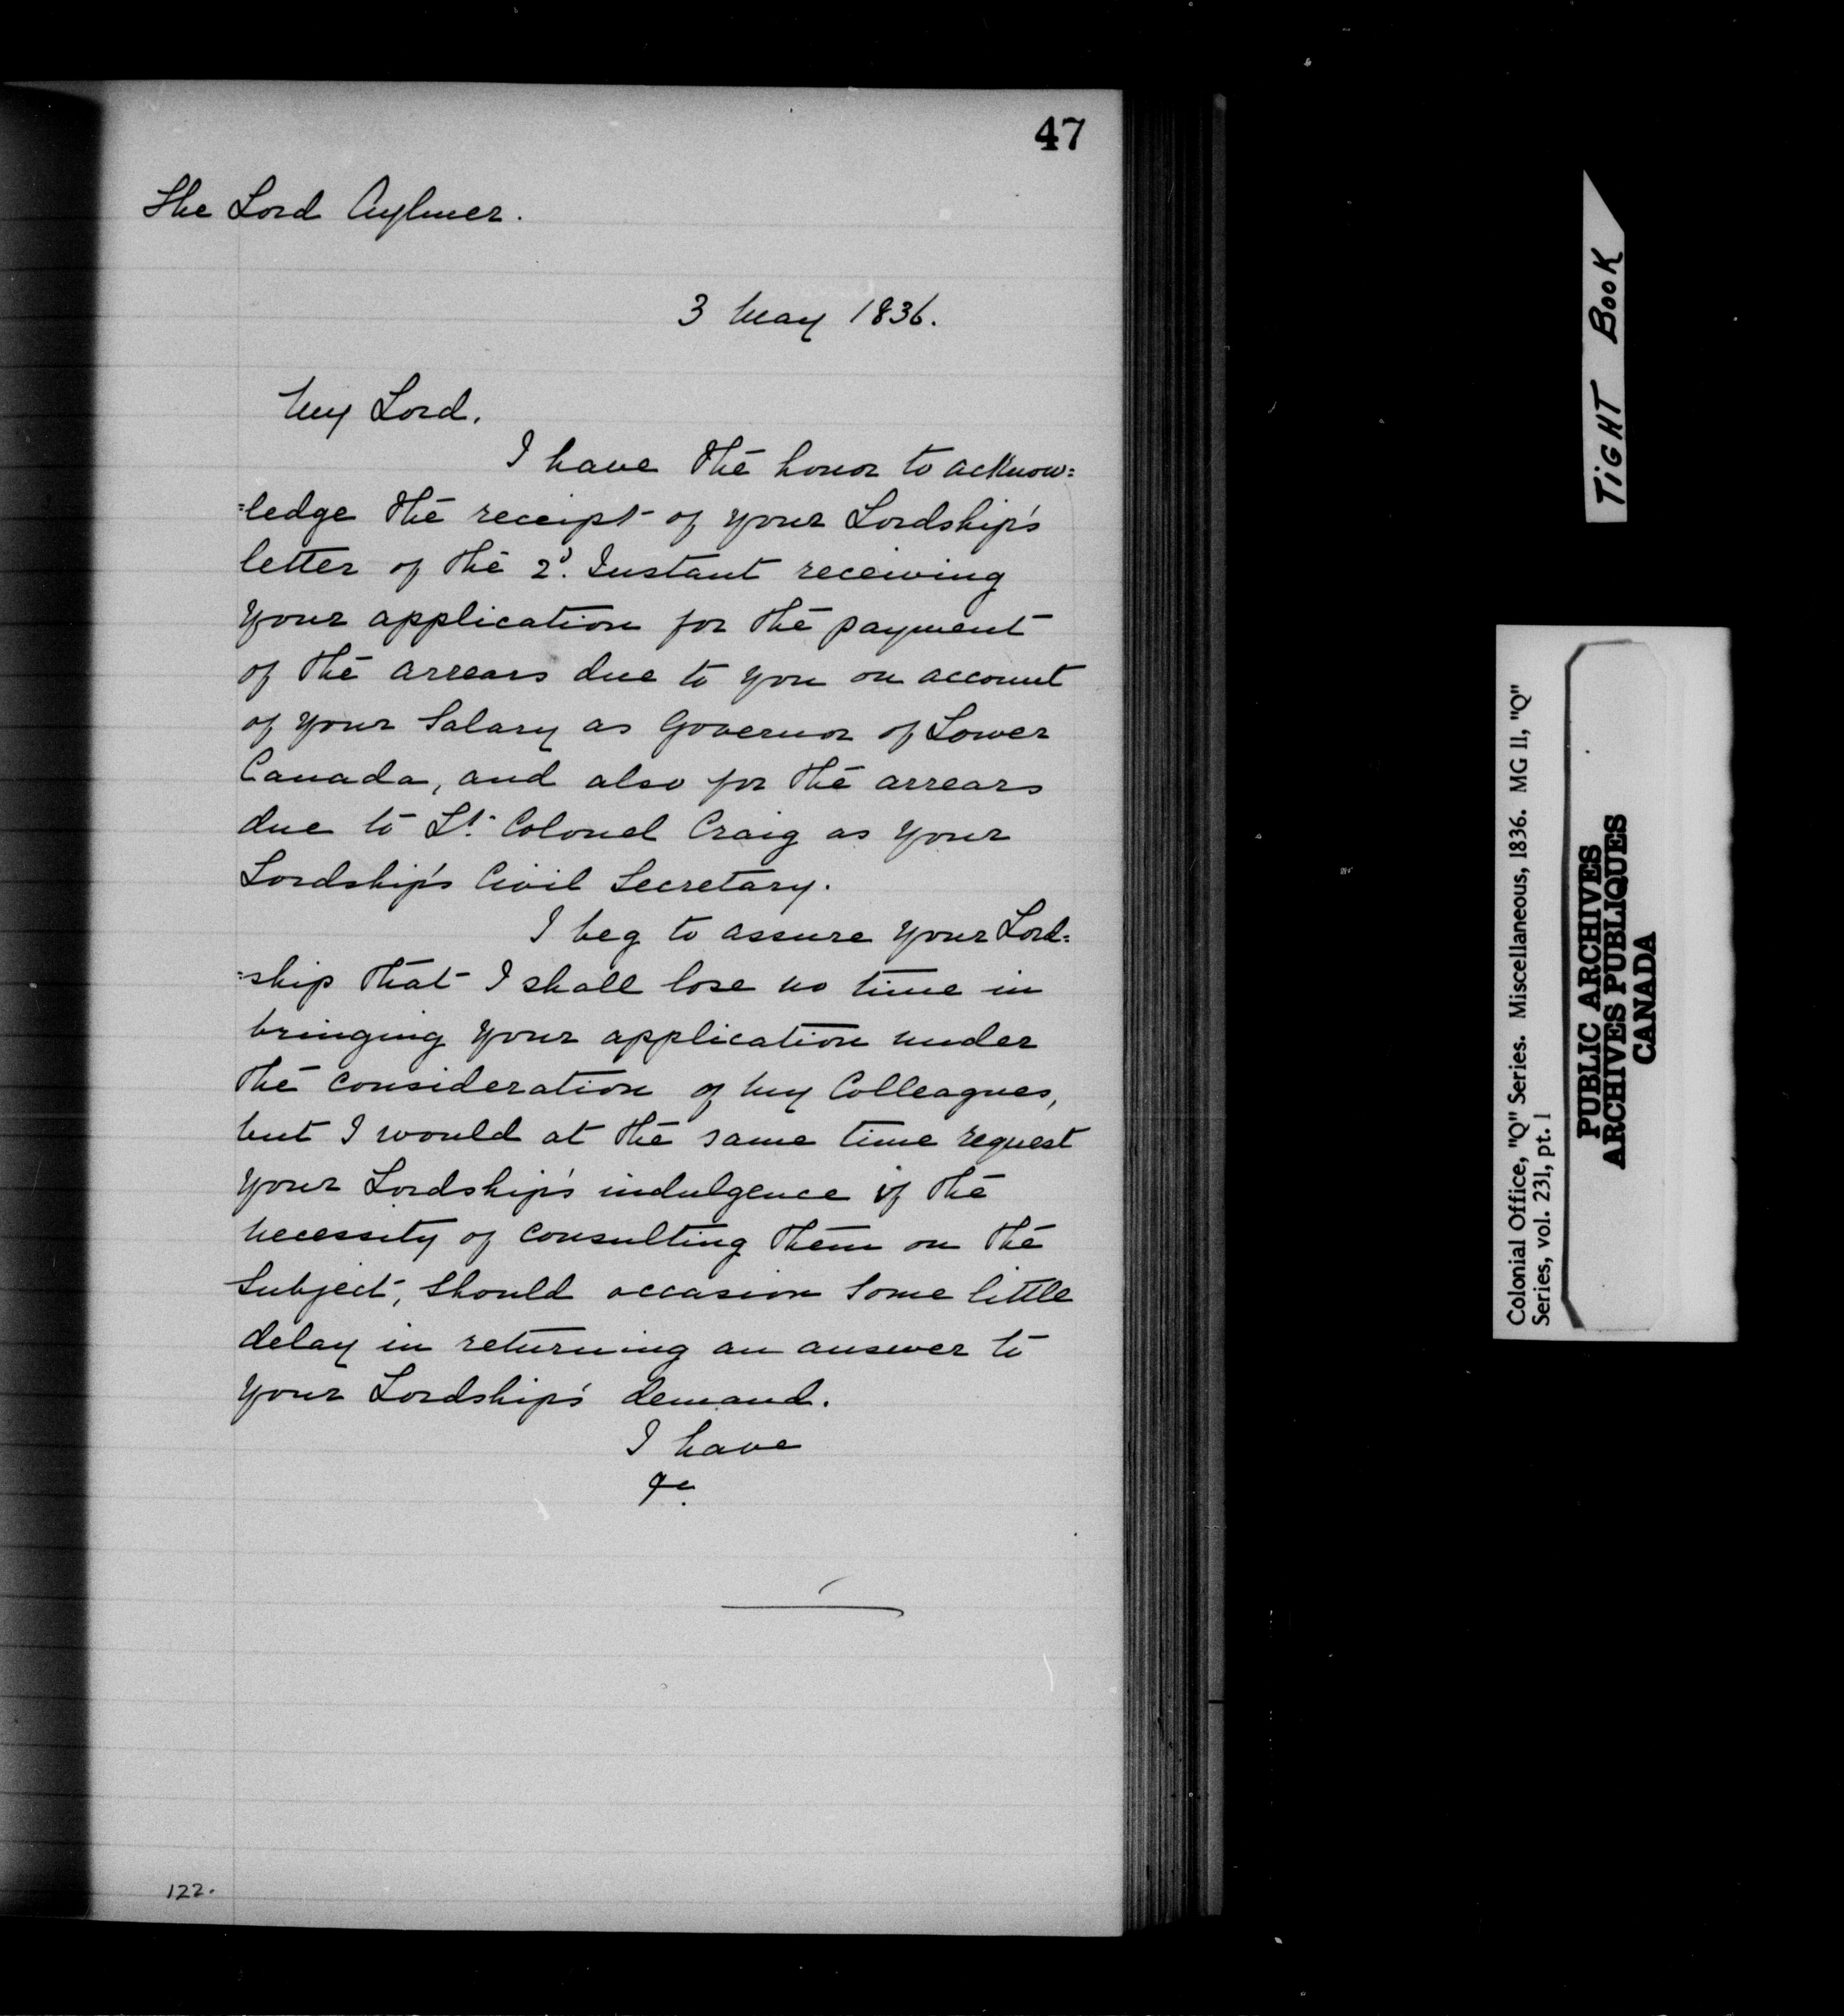 47
The Lord Aylmer.
3 May 1836.
My Lord.
I have the honor to acknow=
=ledge the receipt of your Lordship's
letter of the 2d. Instant receiving
your application for the payment
of the arrears due to you on account
of your Salary as Governor of Lower
Canada, and also for the arrears
due to Lt. Colonel Craig as your
Lordship's Civil Secretary.
I beg to assure your Lord=
=ship that I shall lose no time in
bringing your application under
the consideration of my Colleagues,
but I would at the same time request
your Lordship's indulgence if the
necessity of consulting them on the
Subject, should occasion some little
delay in returning an answer to
your Lordship's demand.
I have
&c.
122.
TIGHT BOOK
Colonial Office, "Q" Series. Miscellaneous, 1836. MG 11, "Q"
Series, vol. 231, pt. 1
PUBLIC ARCHIVES
ARCHIVES PUBLIQUES
CANADA